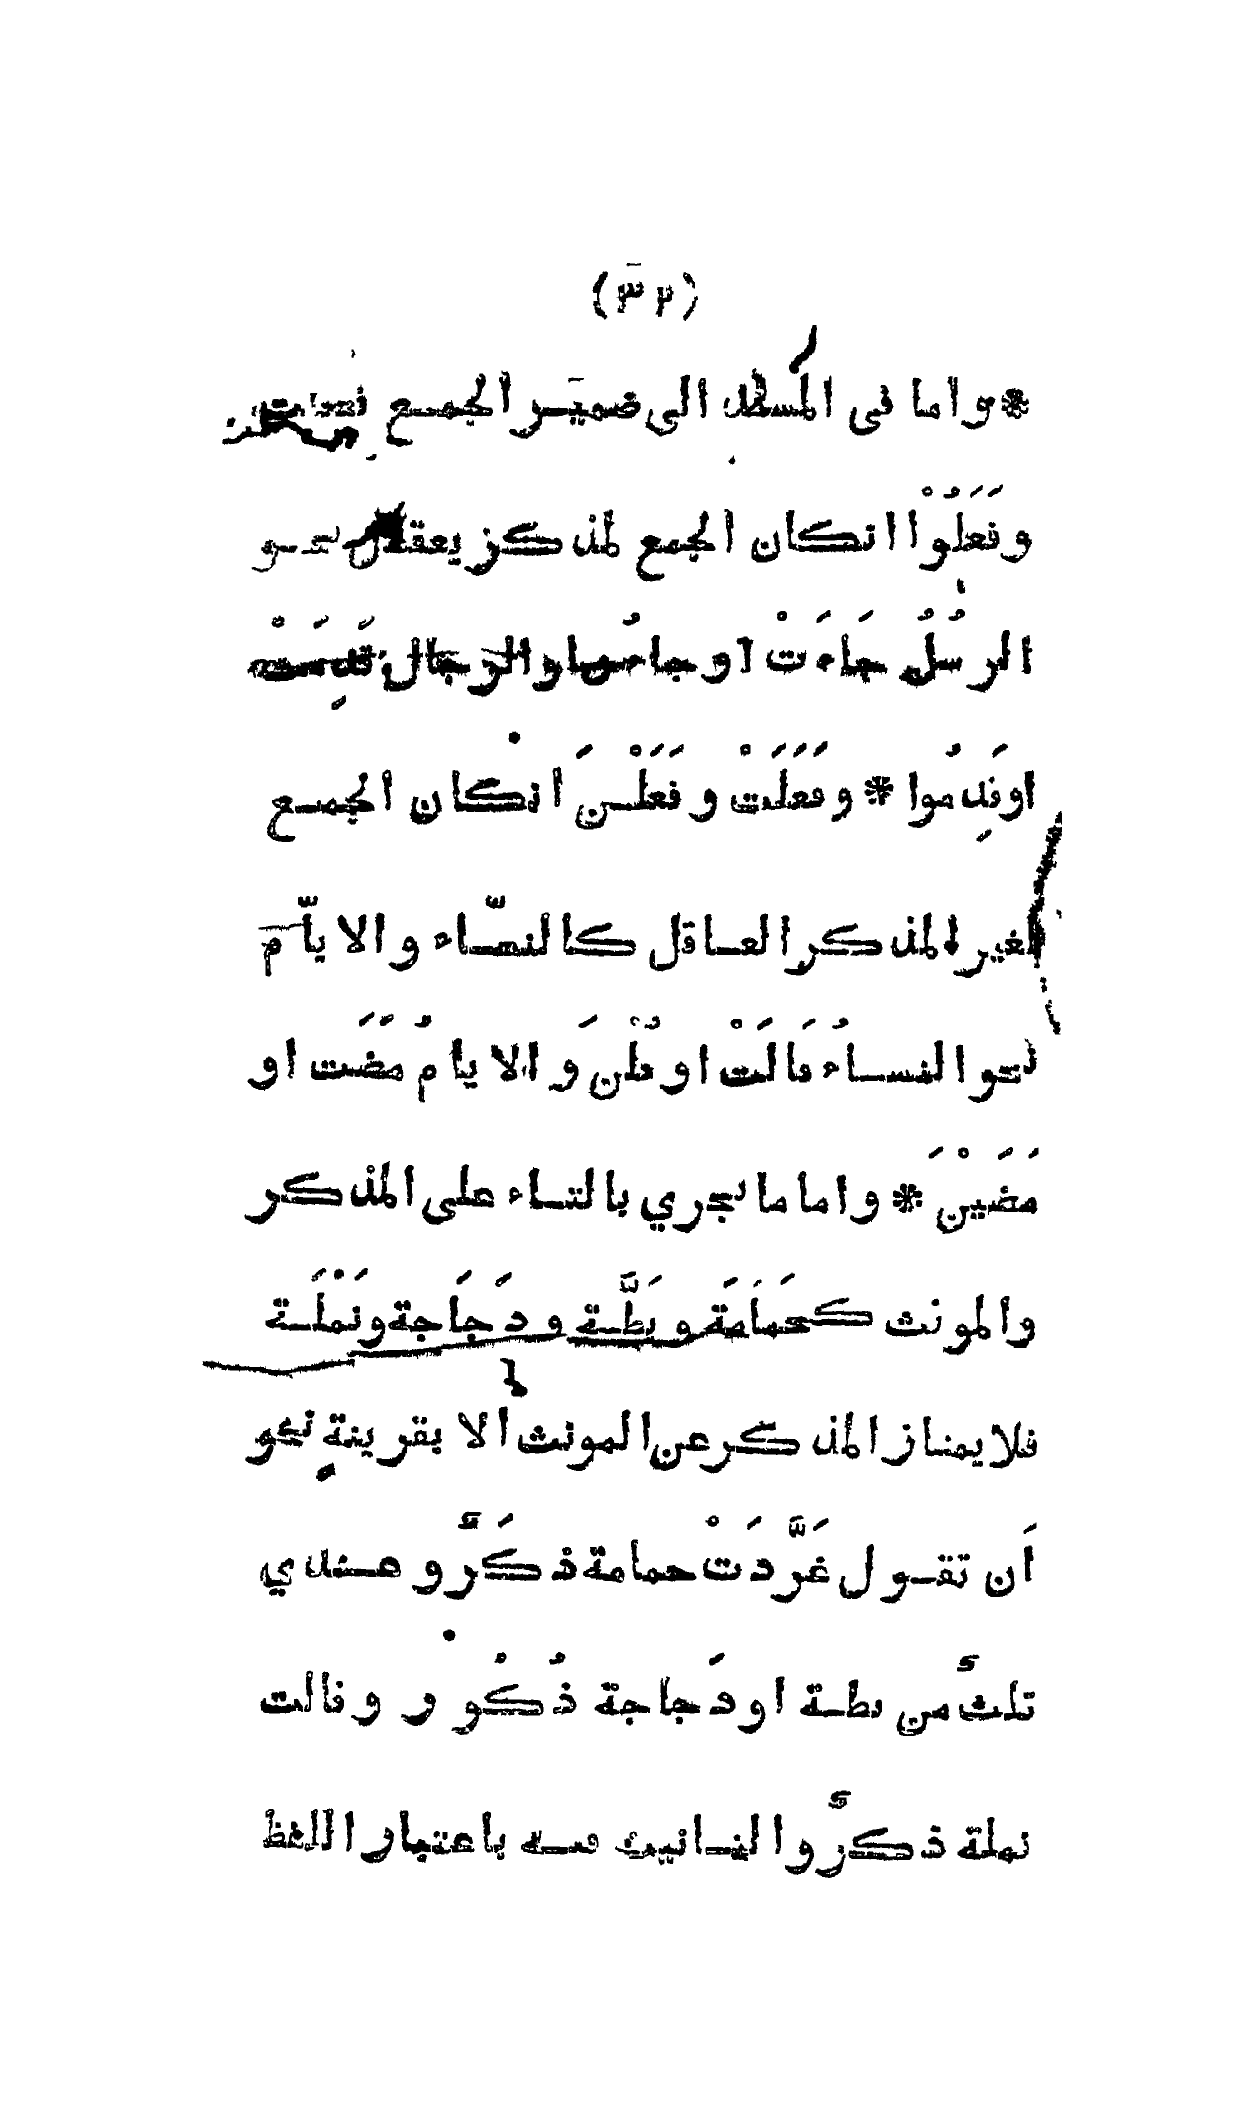 (٣٢)
* واما فى المسند الى ضميـر الجمـع فعلت
وفَعَلُوْا انكان الجمع لمذكر يعقل نحـو
الرسُلُ جَاءَتْ او جاءُوا والرجال قَدِمَتْ
اوقَدِمُوا * وفَعَلَتْ وفَعَلْـنَ انكان الجمـع
لغير المذكر العـاقل كالنسّـاء والايّاَم
نحو النسـاُء قَالَتْ او قُلْنَ والايامُ مضَت او
مَضَيْنَ * واما ما يجري بالتـاء على المذكر
والمونث كحَمَامَة وبَطَّـة ودَجَاجة ونَمْلَـة
فلا يمتاز المذكر عن المونث الا بقرينةٍ نحو
اَن تقـول غَرَّدَتْ حمامة ذكَرٌ وعـندي
ثلثٌ من بطـة او دَجاجة ذُكُور وقالت
نملة ذكرٌ والتـانيث فيـه باعتبار اللفظ